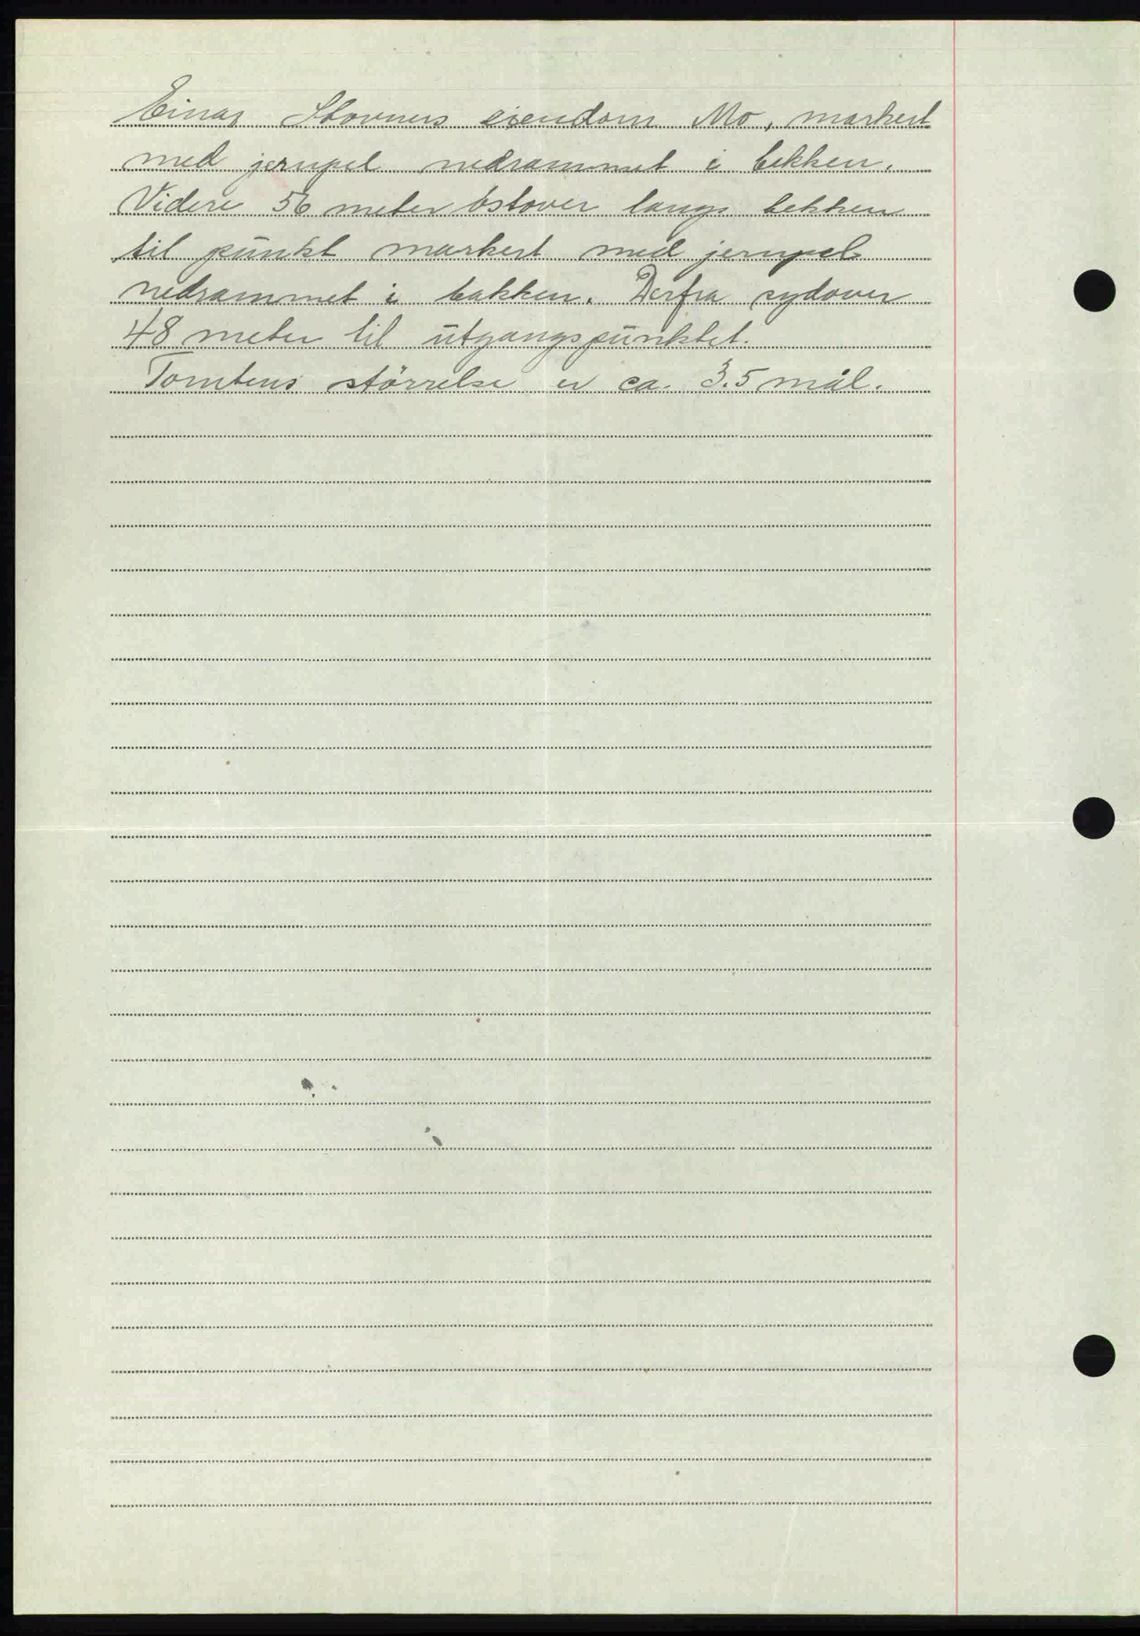 Einar Stovners eiendom Mo, markert
med jernpel nedrammet i bekken.
Videre 56 meter östover langs bekken
til punkt markert med jernpel
nedrammet i bakken. Derfra sydover
48 meter til utgangspunktet.
Tomtens störrelse er ca. 3.5 mål.